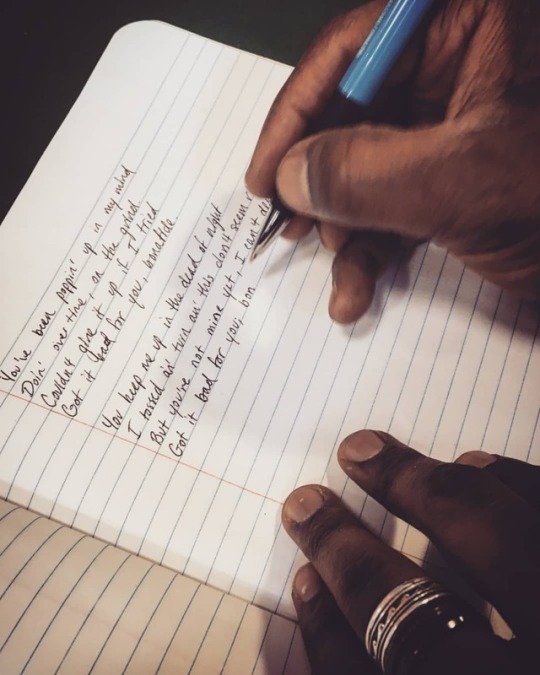 You've been poppin' up in my mind
Doin' overtime, on the grind
Couldn't give it up if I tried
Got it bad for you, bonafide
You keep me up in the dead of night
I tossed an' turn an' this don't seem
But you're not mine yet, I can't de
Got it bad for you, bon